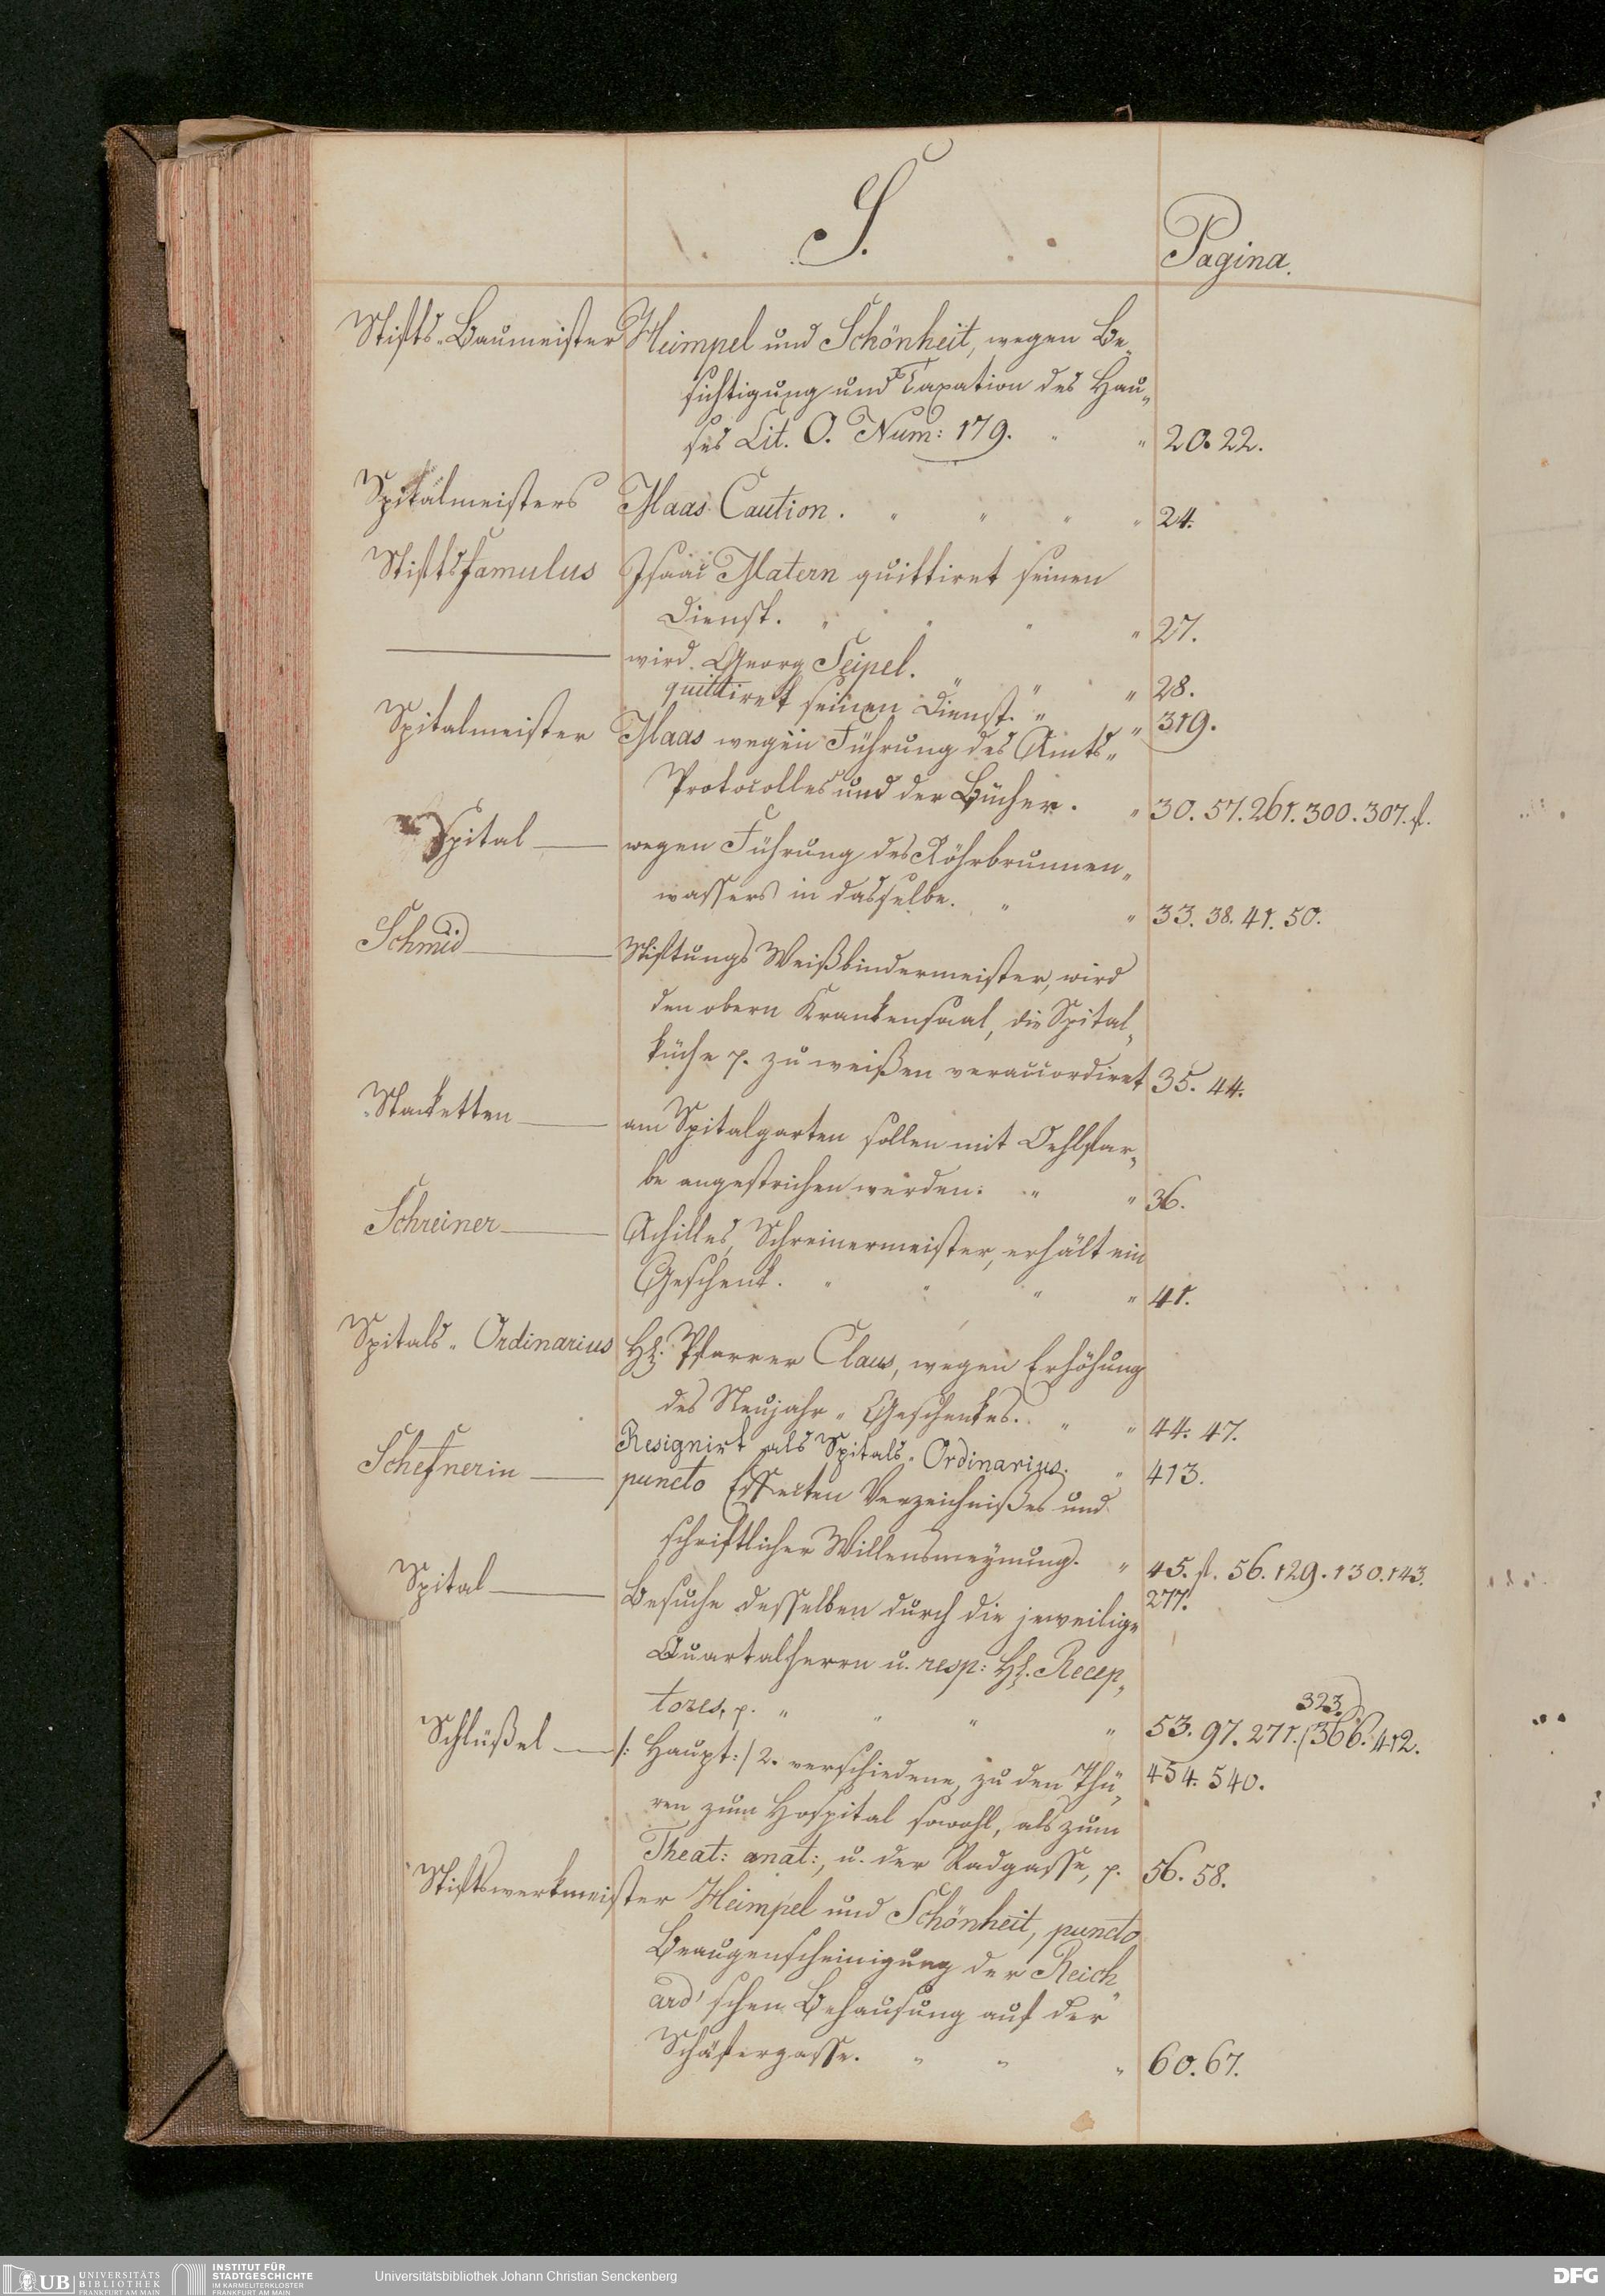 S.
Pagina.
Stifts-Baumeister Heimpel und Schönheit, wegen Be-
sichtigung und Taxation des Hau-
ses Lit. O. Num: 179. " " 20. 22.
Spitalmeisters Maas Caution. " " " " 24.
Stiftsfamulus Isaac Matern quittiret seinen
Dienst. " " " " 27.
——— wird Georg Seipel. " " " 28.
quittiret seinen Dienst. " " 319.
Spitalmeister Maas wegen Führung des Amts-
Protocolles und der Bücher. " 30. 57. 261. 300. 307. f.
Spital — wegen Führung des Röhrbrunnen-
wassers in dasselbe. " " 33. 38. 41. 50.
Schmid — Stiftungs Weißbindermeister, wird
den obern Krankensaal, die Spital-
küche p. zu weißen veraccordiret 35. 44.
Stacketten — am Spitalgarten sollen mit Oehlfar-
be angestrichen werden. " " 36.
Schreiner — Achilles, Schreinermeister, erhält ein
Geschenk. " " " " 41.
Spitals-Ordinarius H. Pfarrer Claus, wegen Erhöhung
des Neujahr-Geschenkes. " " 44. 47.
Resignirt als Spitals-Ordinarius. " 413.
Schefnerin — puncto Effecten Verzeichnißes und
schriftlicher Willensmeynung. " 45. f. 56. 129. 130. 143.
277.
Spital — Besuche desselben durch die jeweilige
Quartalherrn u. resp: H. Recep-
tores, p. " " " " 53. 97. 271. (323.) 366. 412.
454. 540.
Schlüßel — /: Haupt :/ 2. verschiedene, zu den Thü-
ren zum Hospital sowohl, als zum
Theat: anat:, u. der Radgasse, p. 56. 58.
Stiftswerkmeister Heimpel und Schönheit, puncto
Beaugenscheinigung der Reich-
ard'schen Behausung auf der
Schäfergasse. " " " 60. 67.
UB UNIVERSITÄTS BIBLIOTHEK FRANKFURT AM MAIN
INSTITUT FÜR STADTGESCHICHTE IM KARMELITERKLOSTER FRANKFURT AM MAIN
Universitätsbibliothek Johann Christian Senckenberg
DFG